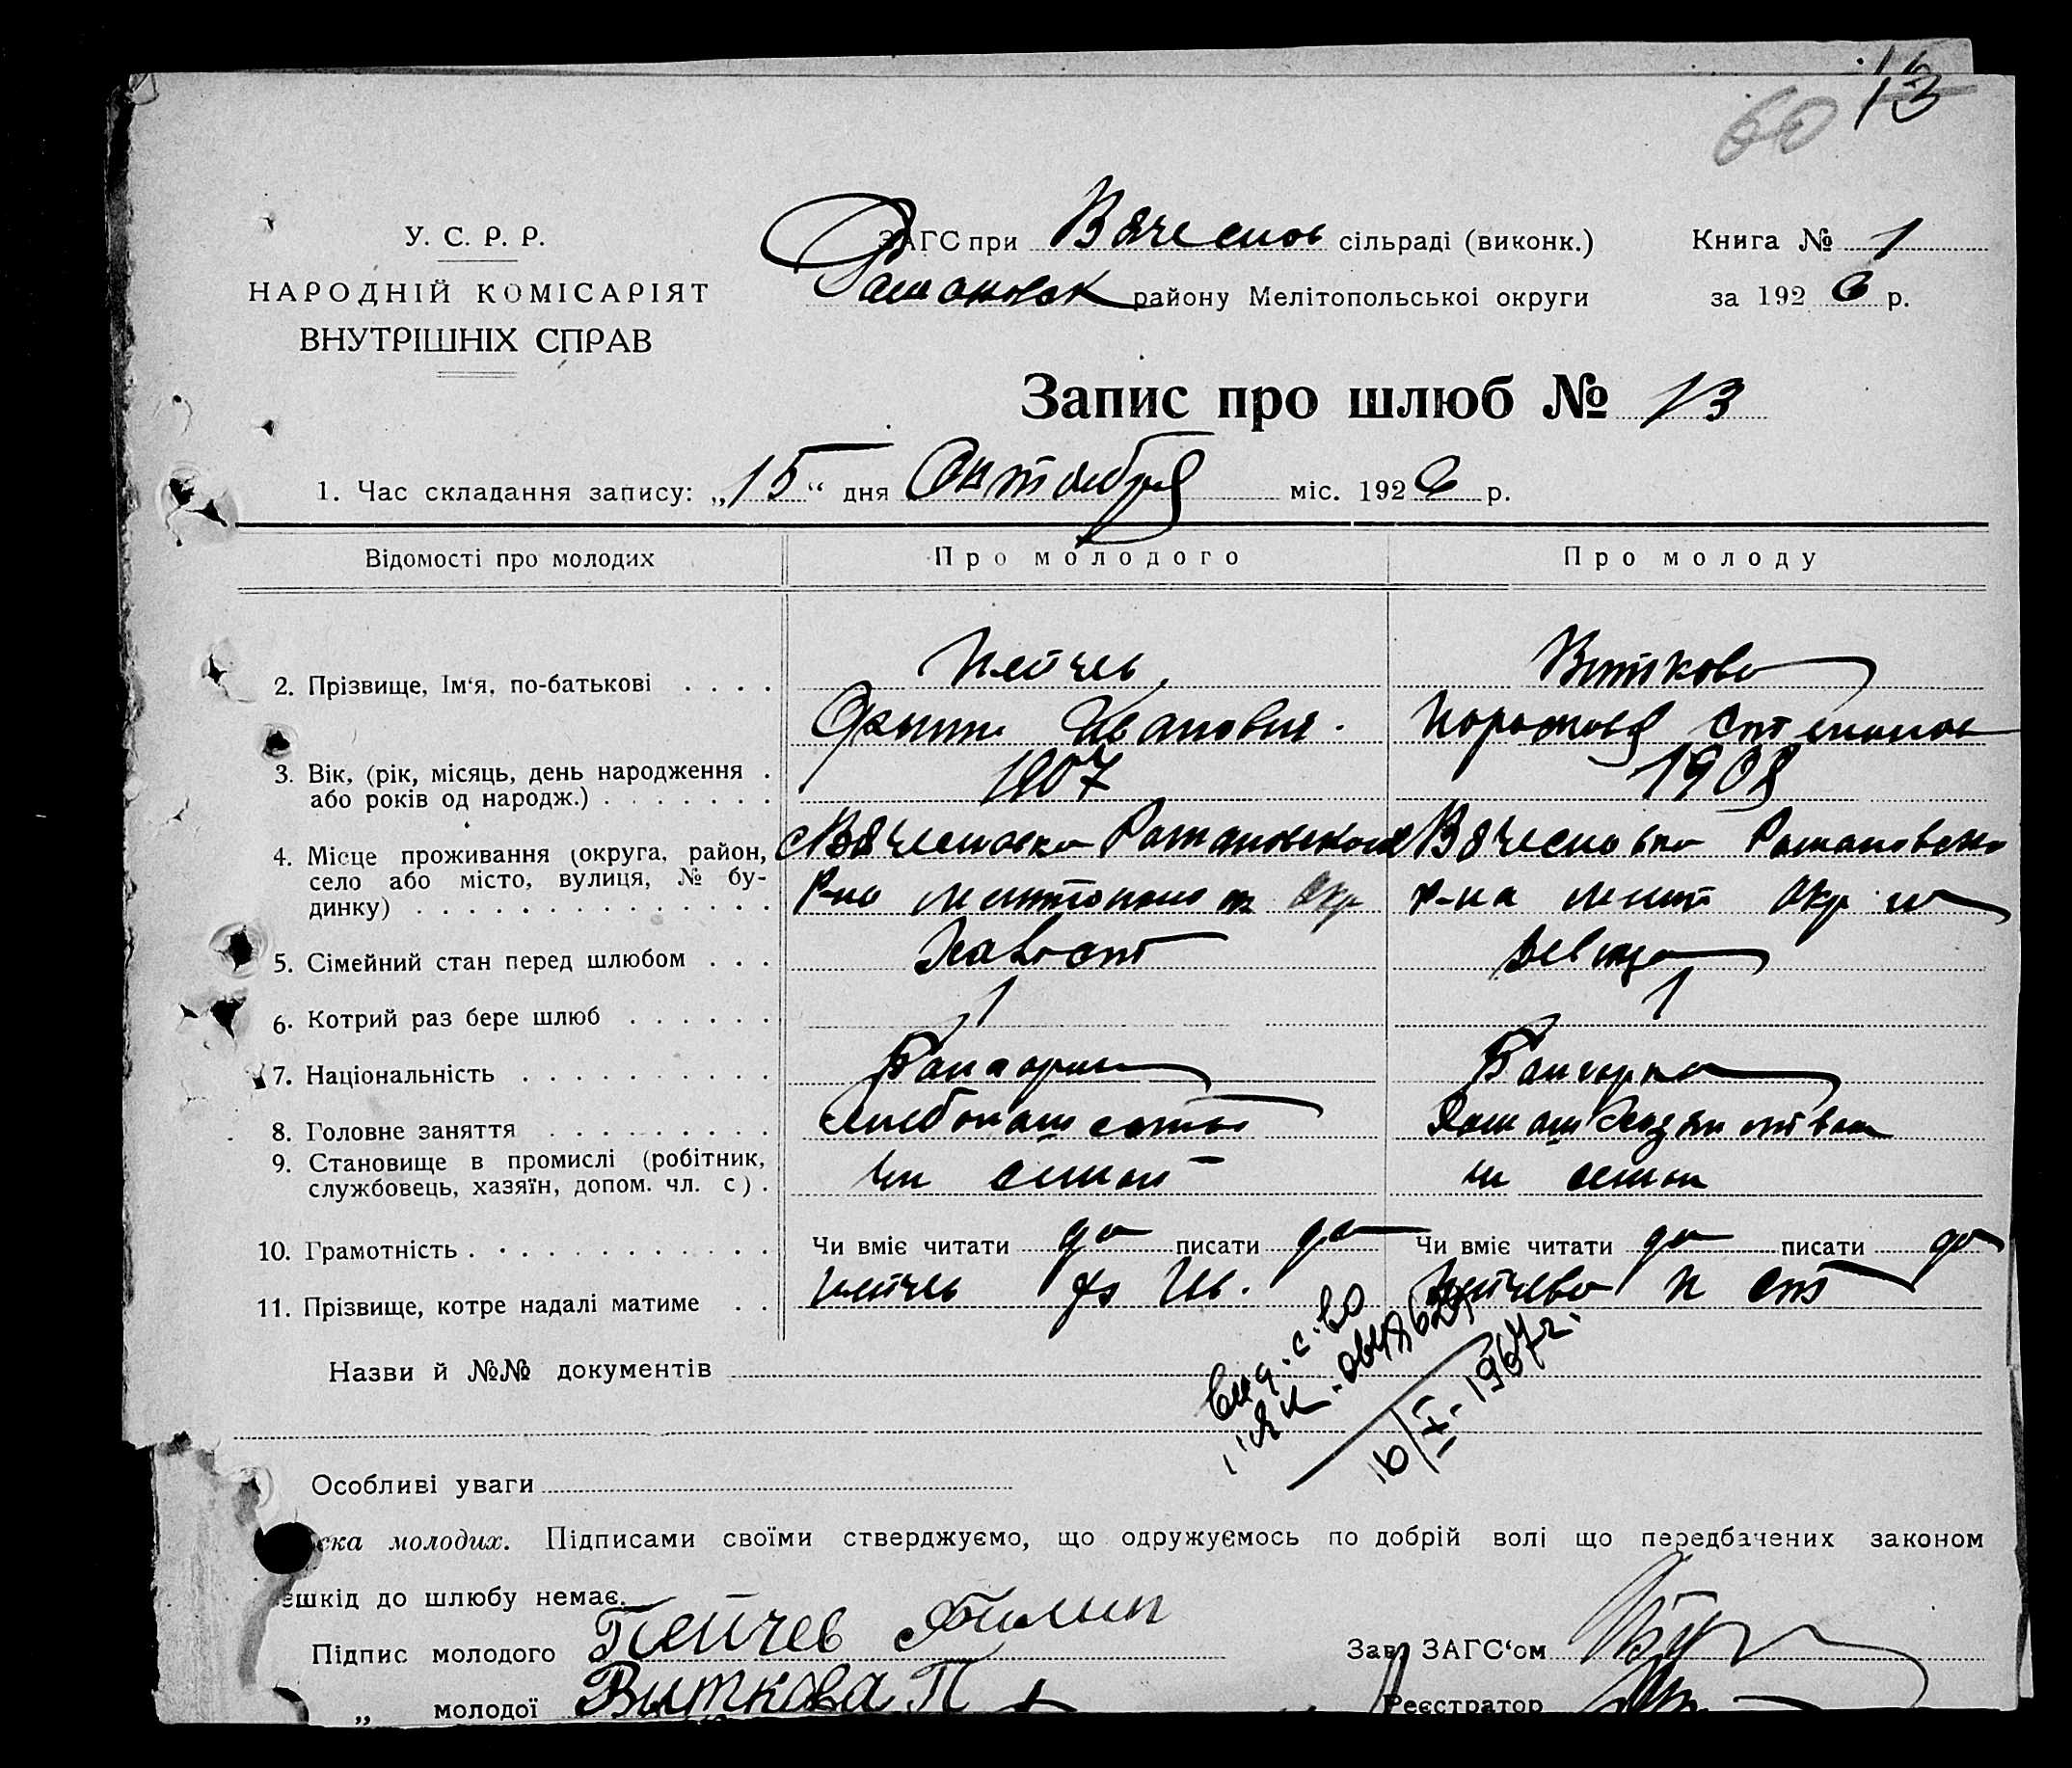 13
60
У. С. Р. Р.
НАРОДНІЙ КОМІСАРІЯТ
ВНУТРІШНІХ СПРАВ
ЗАГС при Вячеслов сільраді (виконк.)
Романовск району Мелітопольської округи
Книга № 1
за 1926 р.
Запис про шлюб № 13
1. Час складання запису: „15“ дня Октября міс. 1926 р.
Відомості про молодих Про молодого Про молоду
2. Прізвище, Ім‘я, по-батькові . . . . Пейчев Виткова
Иванович Степанов
3. Вік, (рік, місяць, день народження . 1907 1908
або років од народж.) . . . . . . .
4. Місце проживання (округа, район, с Вячеславка Романовского Вячеславка Романовско
село або місто, вулиця, № бу- р-на окр р-на Мелит окр
динку) . . . . . . . . . . . . . .
5. Сімейний стан перед шлюбом . . . Холост Девица
6. Котрий раз бере шлюб . . . . . . 1 1
7. Національність . . . . . . . . . . Болгарин Болгарка
8. Головне заняття . . . . . . . . . Хлебопашество Домаш Хозяйством
9. Становище в промислі (робітник, чл семьи чл семьи
службовець, хазяїн, допом. чл. с) .
10. Грамотність . . . . . . . . . . . Чи вміє читати да писати да Чи вміє читати да писати да
11. Прізвище, котре надалі матиме . . Пейчев Ив. Пейчева П Ст
Назви й №№ документів
16/IX-1967г.
Особливі уваги
ска молодих. Підписами своїми стверджуємо, що одружуємось по добрій волі що передбачених законом
ешкід до шлюбу немає.
Підпис молодого Пейчев Филип Зав. ЗАГС‘ом
„ молодої Виткова П Реєстратор